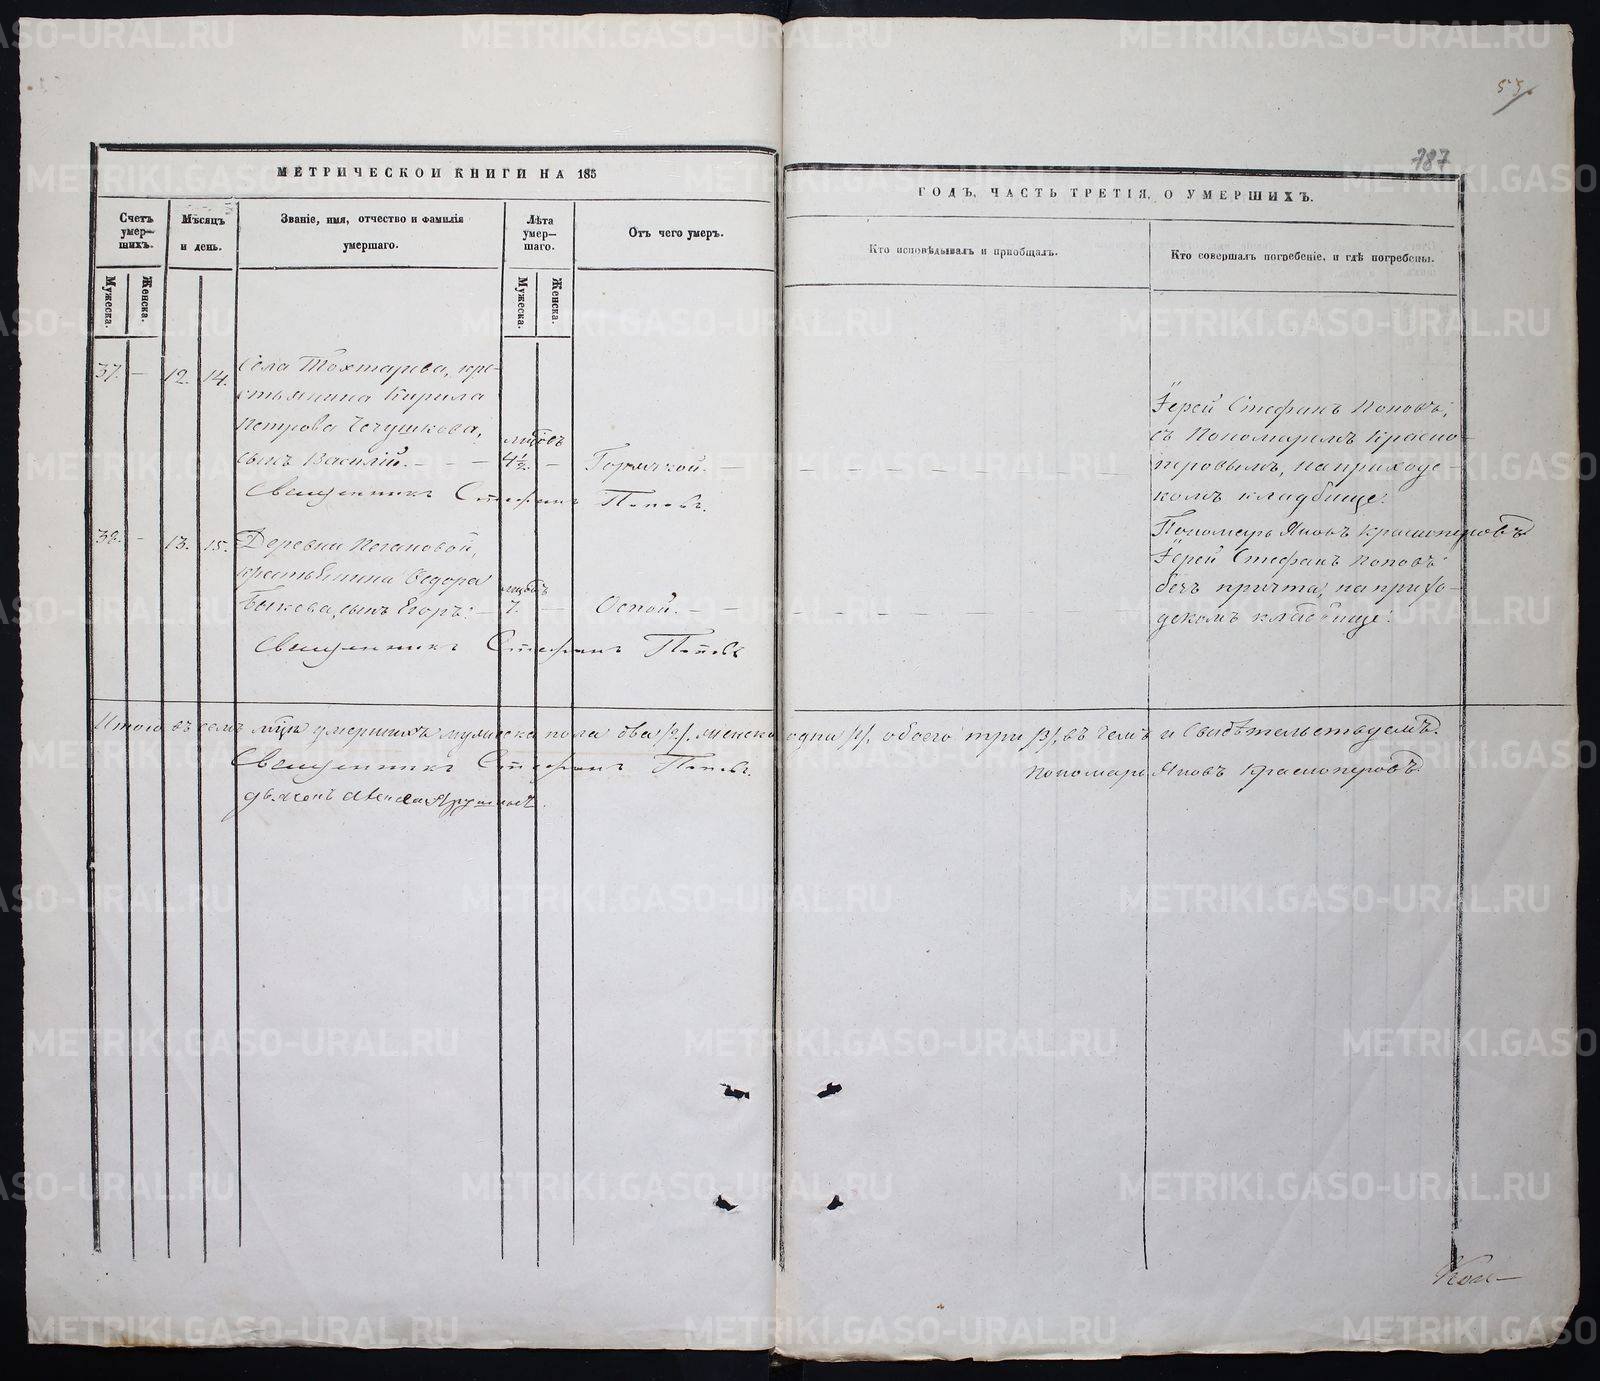 53.
187
МЕТРИЧЕСКОЙ КНИГИ НА 185
ГОДЪ, ЧАСТЬ ТРЕТІЯ, О УМЕРШИХЪ.
Счетъ умер-шихъ.
Мѣсяцъ и день.
Званіе, имя, отчество и фамилія умершаго.
Лѣта умер-шаго.
Отъ чего умеръ.
Кто исповѣдывалъ и пріобщалъ.
Кто совершалъ погребеніе, и гдѣ погребены.
Мужеска.
Женска.
Мужеска.
Женска.
37. — 12. 14.
Села Тохтарева, кре-
стьянина Кирила
Петрова Чечушкова,
сынъ Василій. — — —
4½. —
Горячкой. —
Іерей Стефанъ Поповъ,
съ Пономаремъ Красно-
перовымъ, на приход-
скомъ кладбище.
Священникъ Стефанъ Поповъ.
Пономарь Яковъ Красноперовъ
38. — 13. 15.
Деревни
крестьянина Федора
Быкова, сынъ Егоръ. —
7. —
Оспой. — —
Іерей Стефанъ Поповъ
безъ причта, на прихо-
дскомъ кладбище.
Священникъ Стефанъ Поповъ
Итого въ семъ мцѣ умершихъ мужеска пола два /2/, женска одна /1/, обоего три /3/, въ чемъ и свидѣтельствуемъ.
Священникъ Стефанъ Поповъ.
Пономарь Яковъ Красноперовъ
METRIKI.GASO-URAL.RU